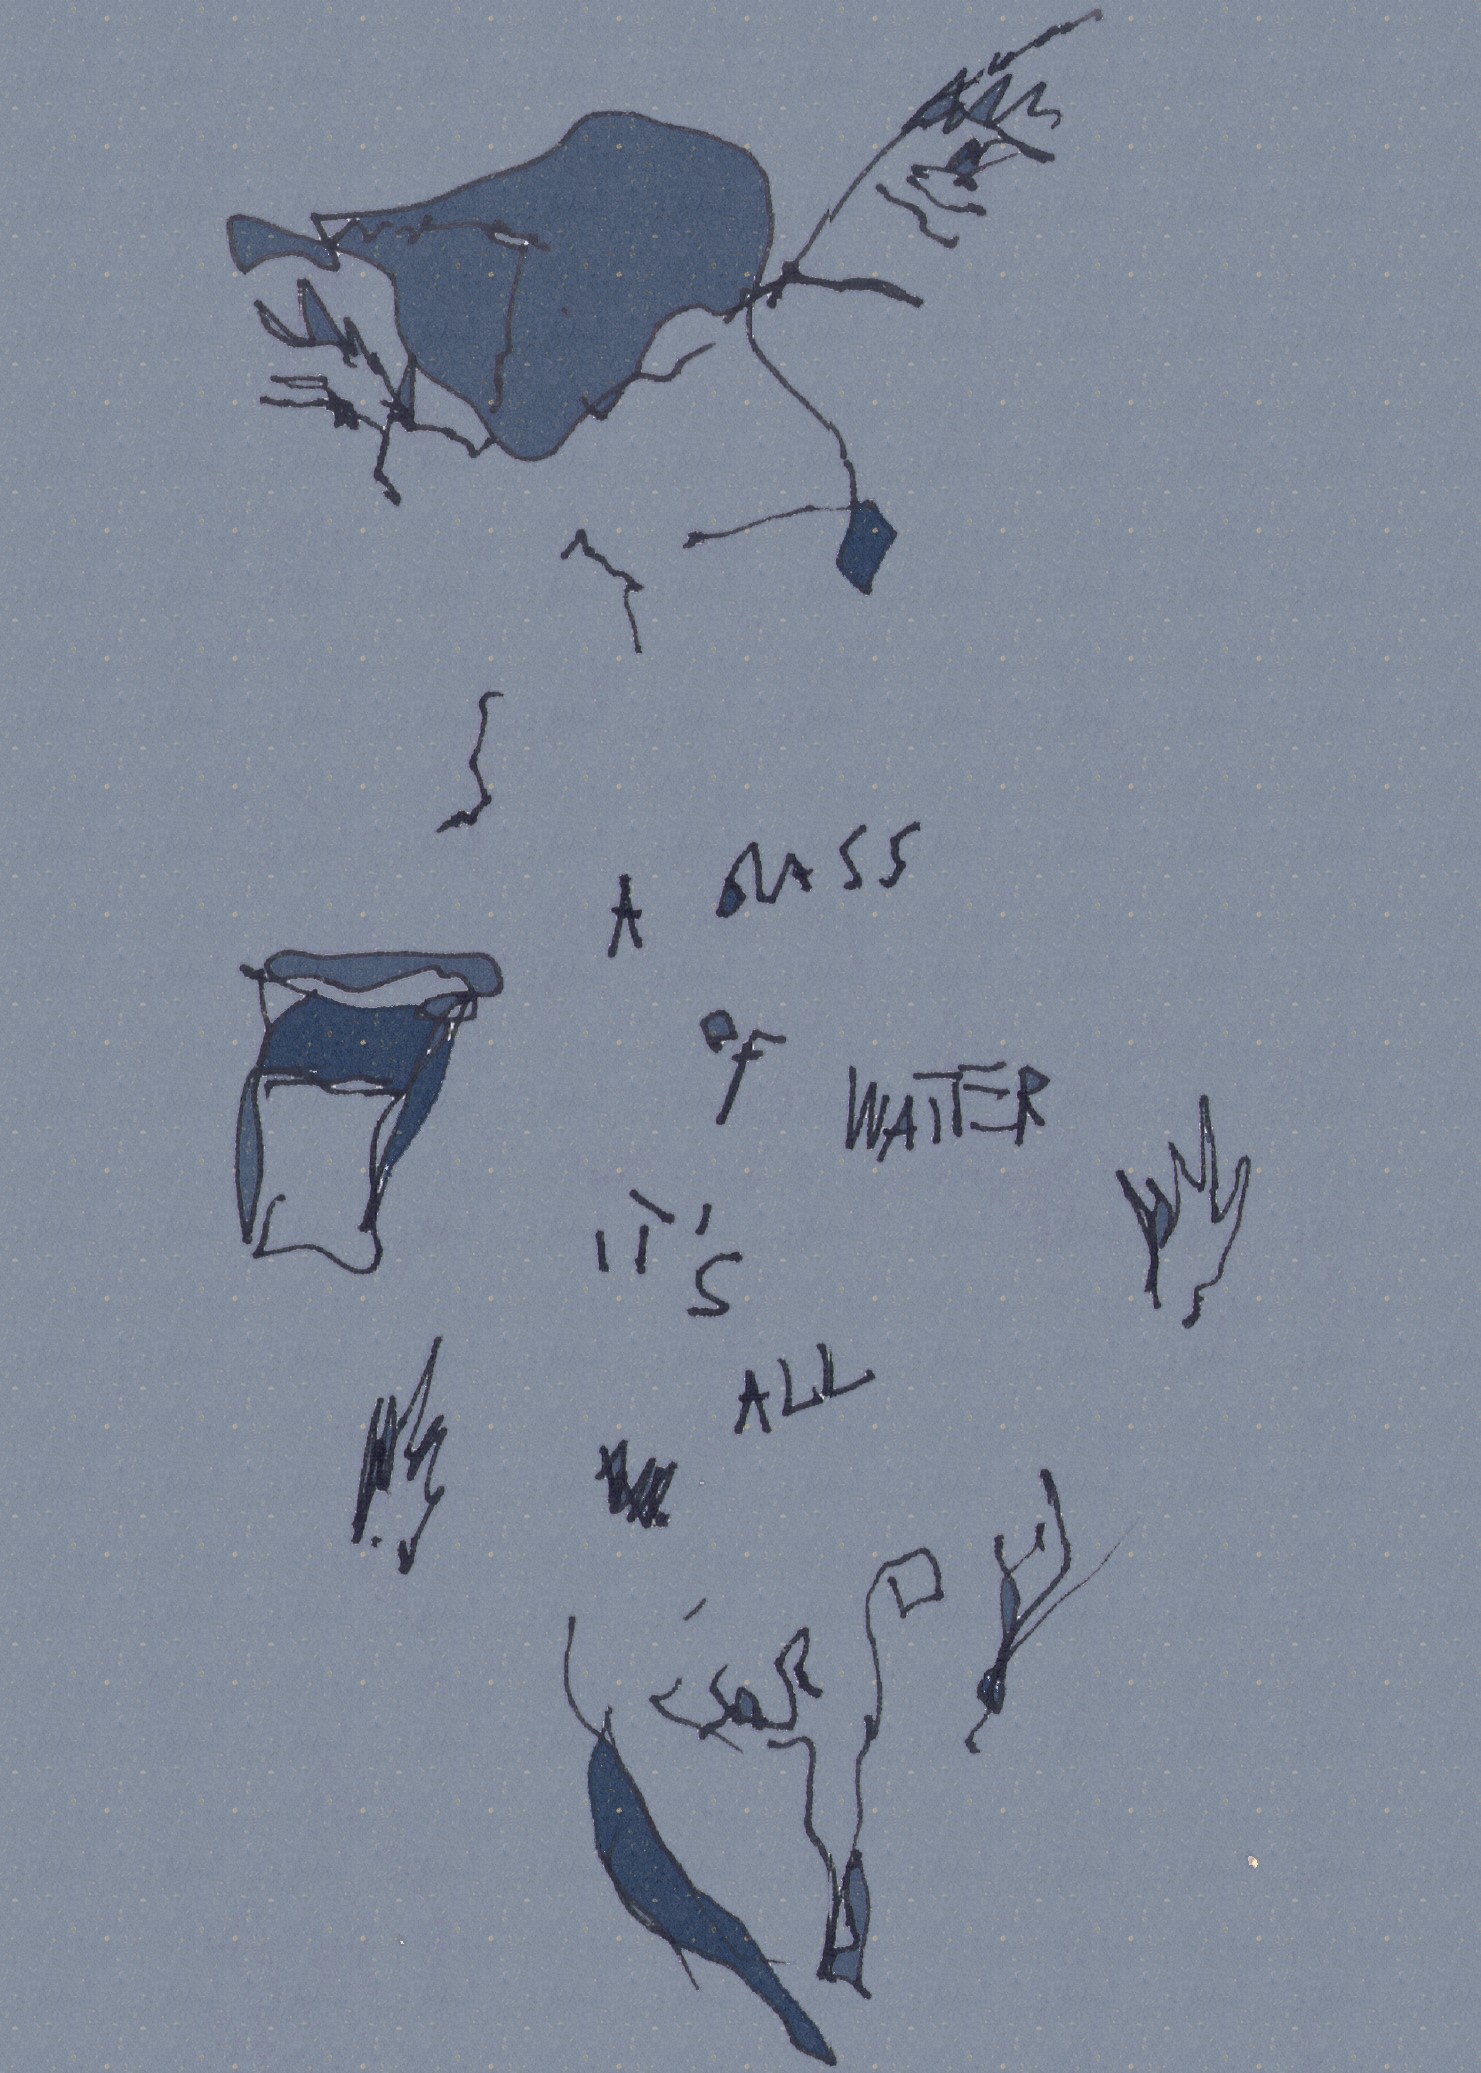 A GLASS
OF WAITER
IT'S
ALL